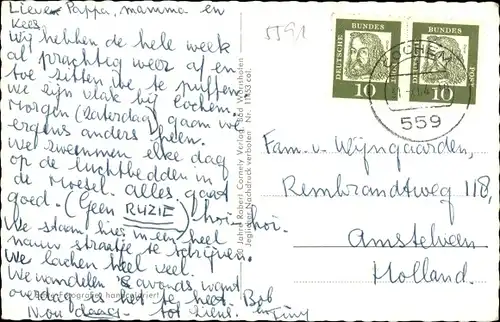 Lieve Pappa, mamma en
Kees,
Wij hebben de hele week
al prachtig weer af en
toe zitten we te puffen
we zijn vlak bij Cochem.
Morgen (Zaterdag) gaan we
ergens anders heen.
We zwemmen elke dag
op de luchtbedden in
de Moesel. alles gaat
goed. (Geen RUZIE) hoi-hoi.
We staan hier in een heel
nauw straatje te schrijven.
We lachen heel veel.
We wandelen 's avonds, want
overdag is het te heet. Bob
Nou daag tot ziens. en Tiny
5591
DEUTSCHE BUNDESPOST
10
DEUTSCHE BUNDES POST
10
COCHEM
559
Fam. v. Wijngaarden,
Rembrandtweg 118,
Amstelveen
Holland.
50 Jahre Robert Cornely Verlag, Bad Wörishofen
Jeglicher Nachdruck verboten Nr. 11353 col.
handkoloriert